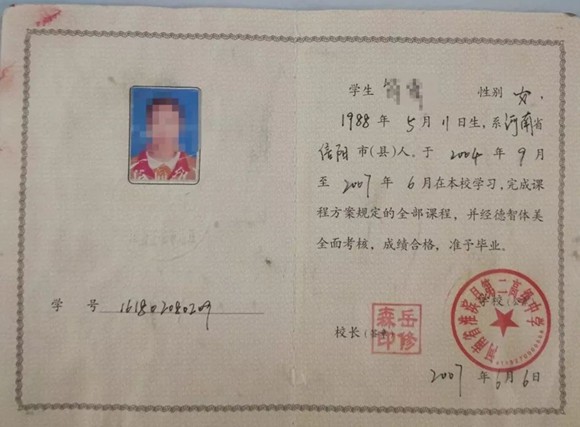 学生 性别 女.
1988 年 5 月 11 日生，系河南省
信阳 市(县)人，于 2004 年 9 月
至 2007 年 6 月在本校学习，完成课
程方案规定的全部课程，并经德智体美
全面考核，成绩合格，准予毕业。
学 号 161802080209
学校
河南省淮滨县第二高级中学
校长(签章)
岳修森印
2007 年 6 月 6 日